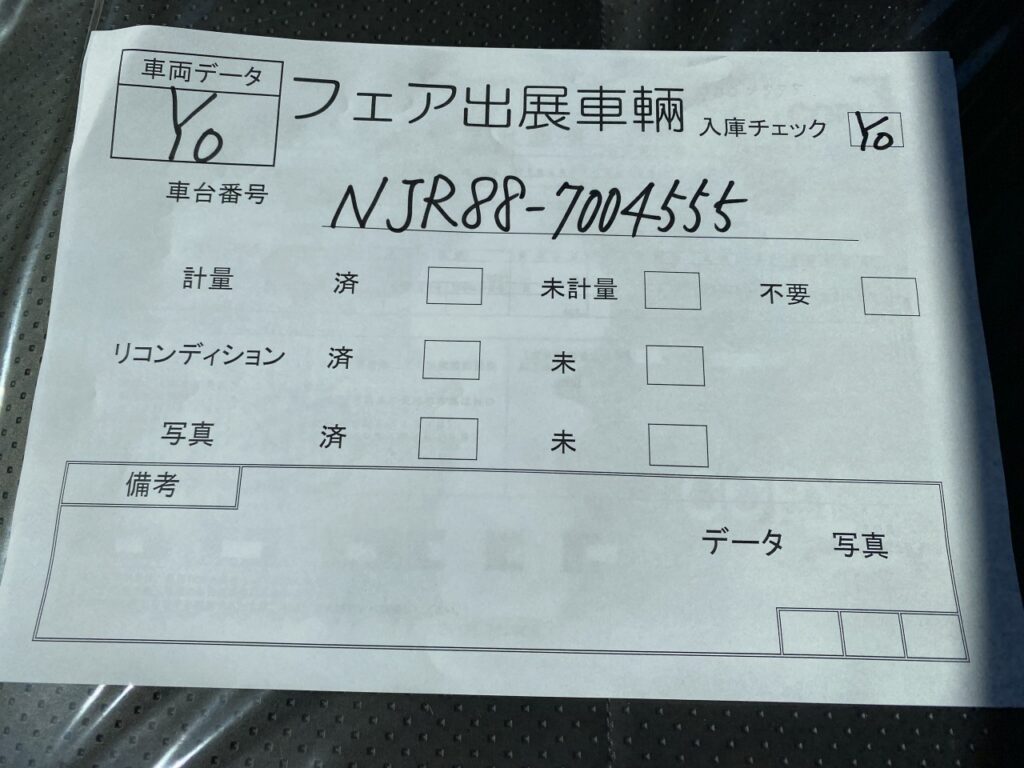 車両データ
Yo
フェア出展車輛
入庫チェック Yo
車台番号 NJR88-7004555
計量 済 未計量 不要
リコンディション 済 未
写真 済 未
備考
データ 写真